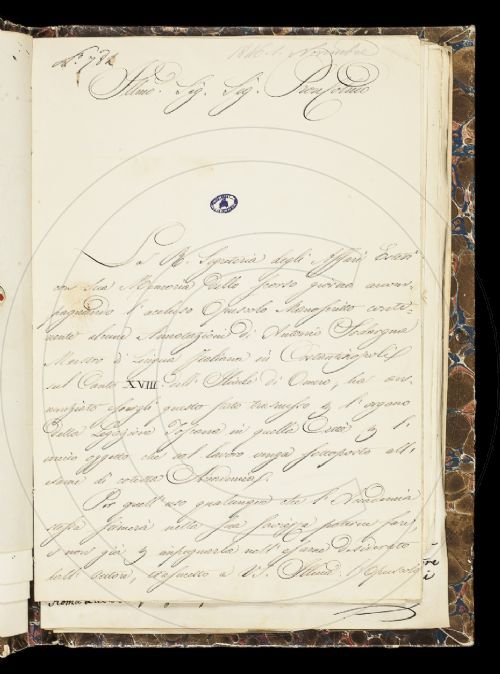 N.° 782
1846. 1. Novembre
Illmo. Sig. Sig. Pron Colmo
La R. Segreteria degli Affari Esteri
con sua Memoria dello scorso giorno accom-
pagnando l'accluso Opuscolo Manoscritto conte-
nente alcune Annotazioni di Antonio
Maestro di Lingua Italiana in Costantinopoli
sul Canto XVIII dell'Iliade di Omero, ha an-
nunziato essergli questo stato trasmesso per l'organo
della Legazione Toscana in quella Città per l'
unico oggetto che nel lavoro venga sottoposto all'e-
same di codesta Accademia.
Per quell'uso qualunque che l'Accademia
stessa stimerà nella sua saviezza poterne fare,
e non già per impegnarla nell'esame desiderato
dall'autore, trasmetto a V.S. Illma. l'Opuscolo
Roma